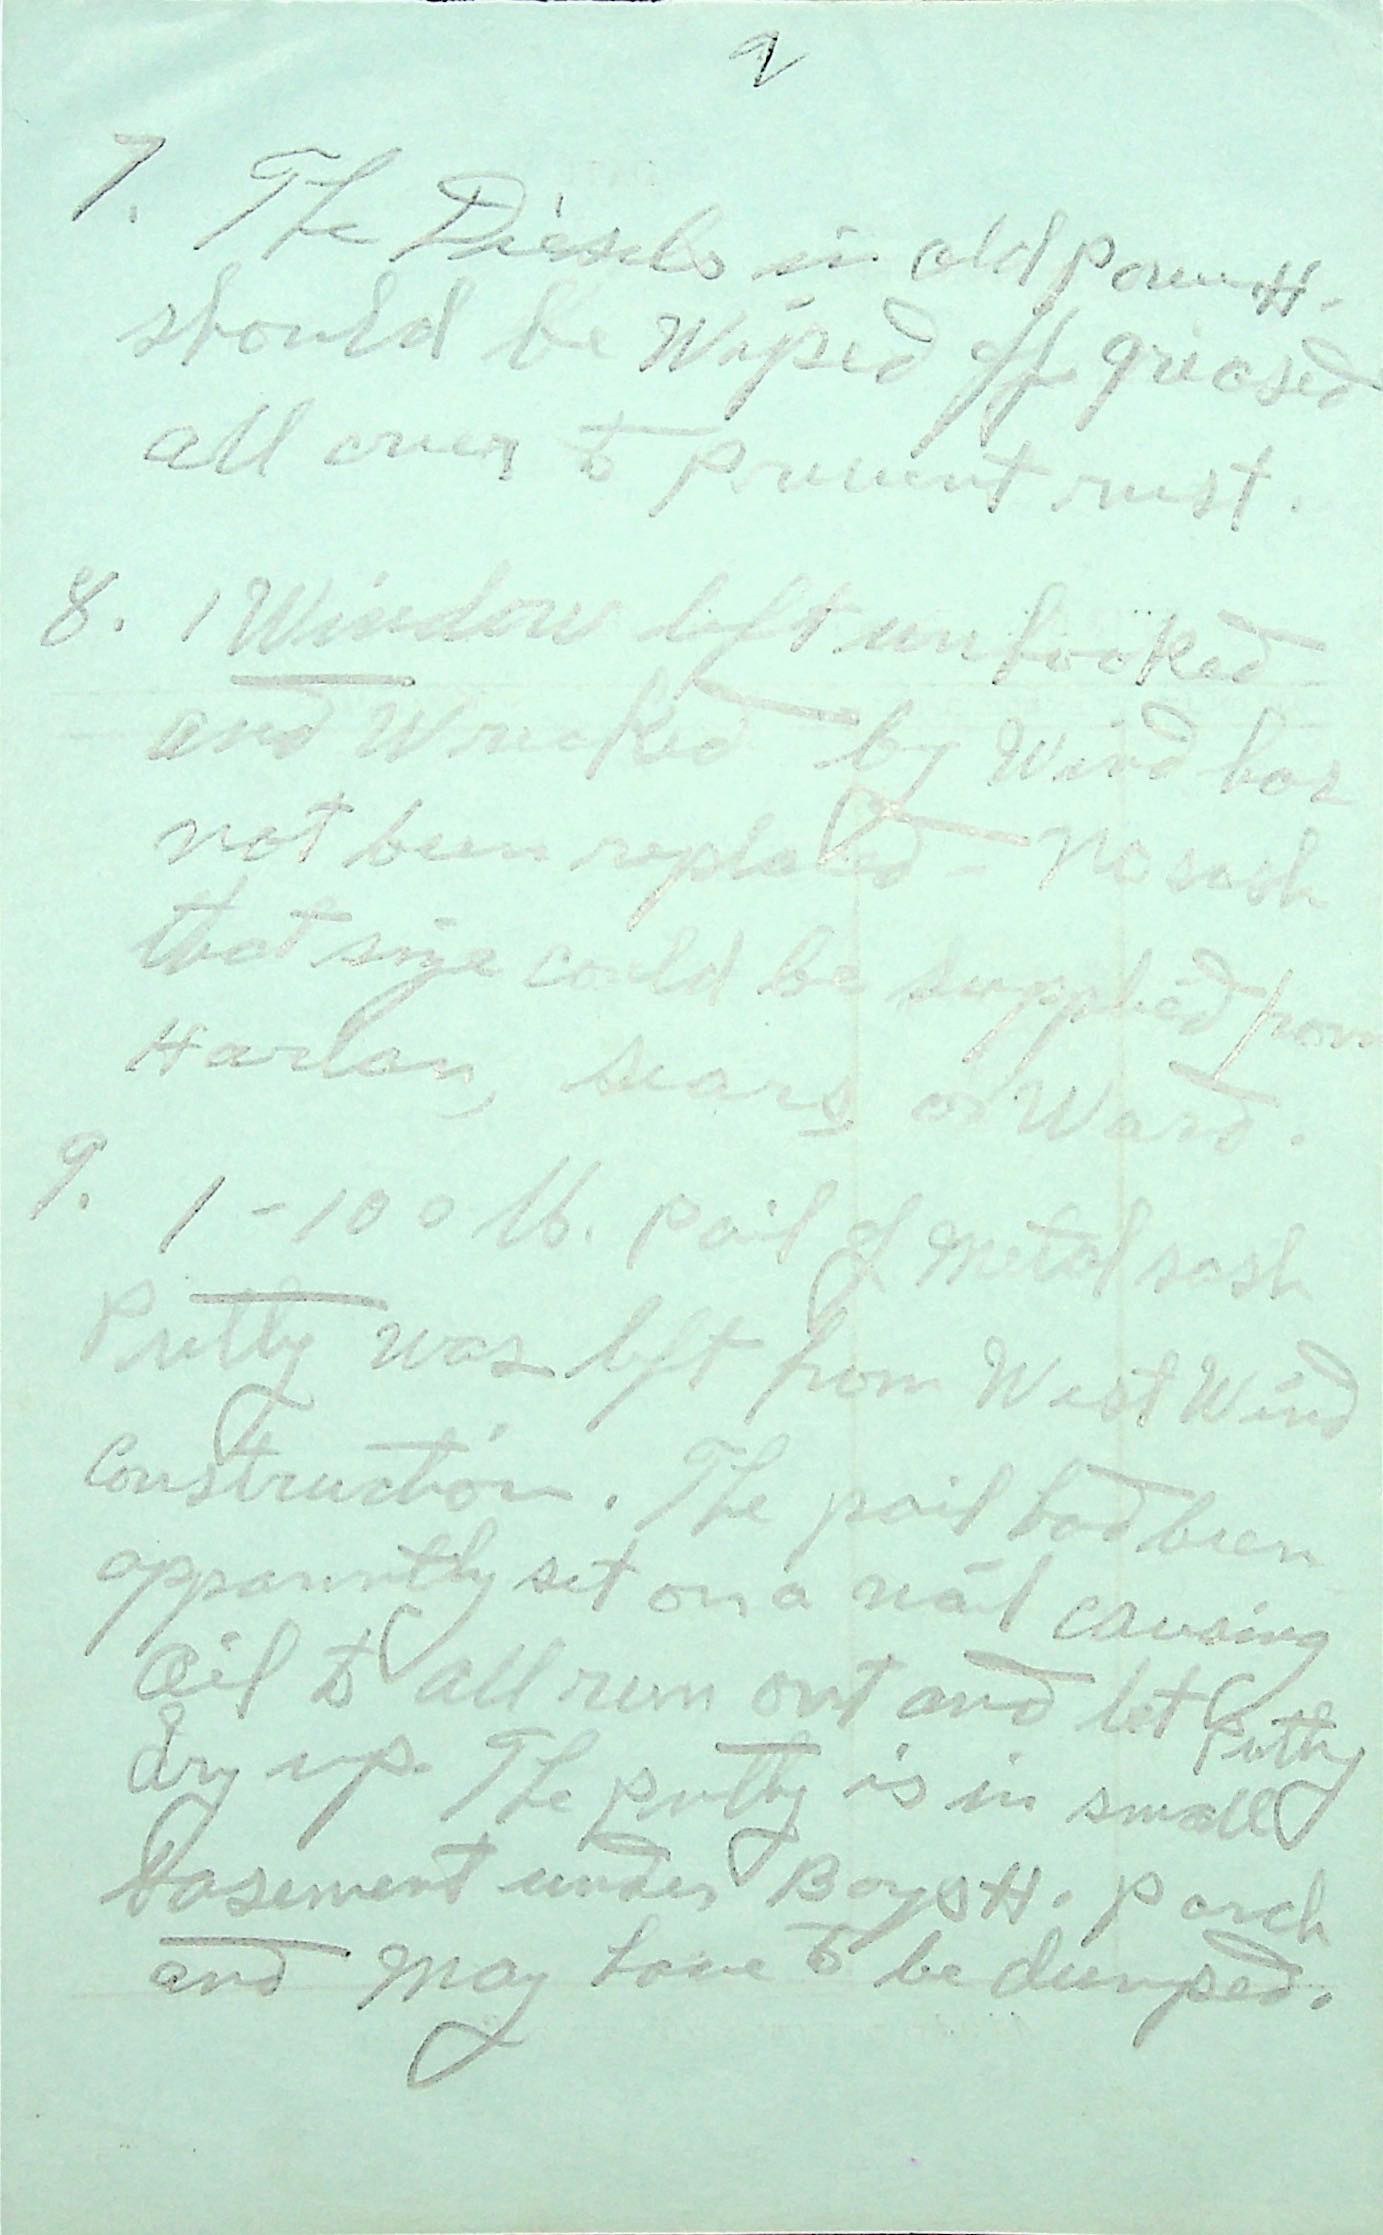 2
7. The Diesels in old power H.
should be Wiped off greased
all over to prevent rust.
8. 1 Window left unhooked
and Wrecked by Wind has
not been replaced - No sash
that size could be supplied from
Harlan, Sears or Ward.
9. 1-100 lb. pail of Metal sash
Putty was left from West Wind
Construction. The pail had been
apparently set on a nail causing
Oil to all run out and let Putty
dry up. The putty is in small
basement under Boys H. Porch
and May have to be dumped.